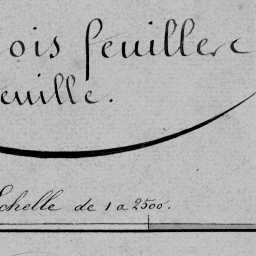 ois feuille
euille.
Echelle de 1 a 2500.